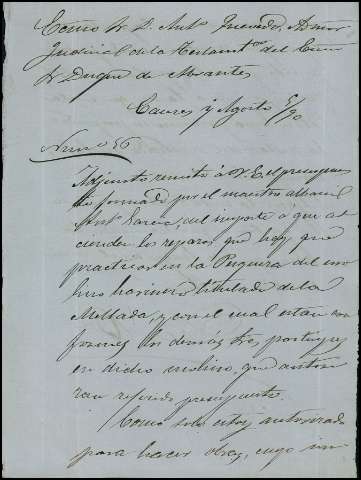 Excmo Sr D. Antº Quevedo, Admor
Judicial de la Testamentª del Excmo
Sr Duque de Abrantes
Caceres y Agosto 5/90
Numº 56
Adjunto remito á V.E. el presupues
to formado por el maestro albañil
Antº Garcia, del importe á que as
cienden los reparos que hay que
practicar en la Pesquera del mo
lino harinero titulado de la
Mellada, y con el cual estan con
formes los demás tres partícipes
en dicho molino, que autori
zan referido presupuesto.
Como solo estoy autorizado
para hacer obras, cuyo im